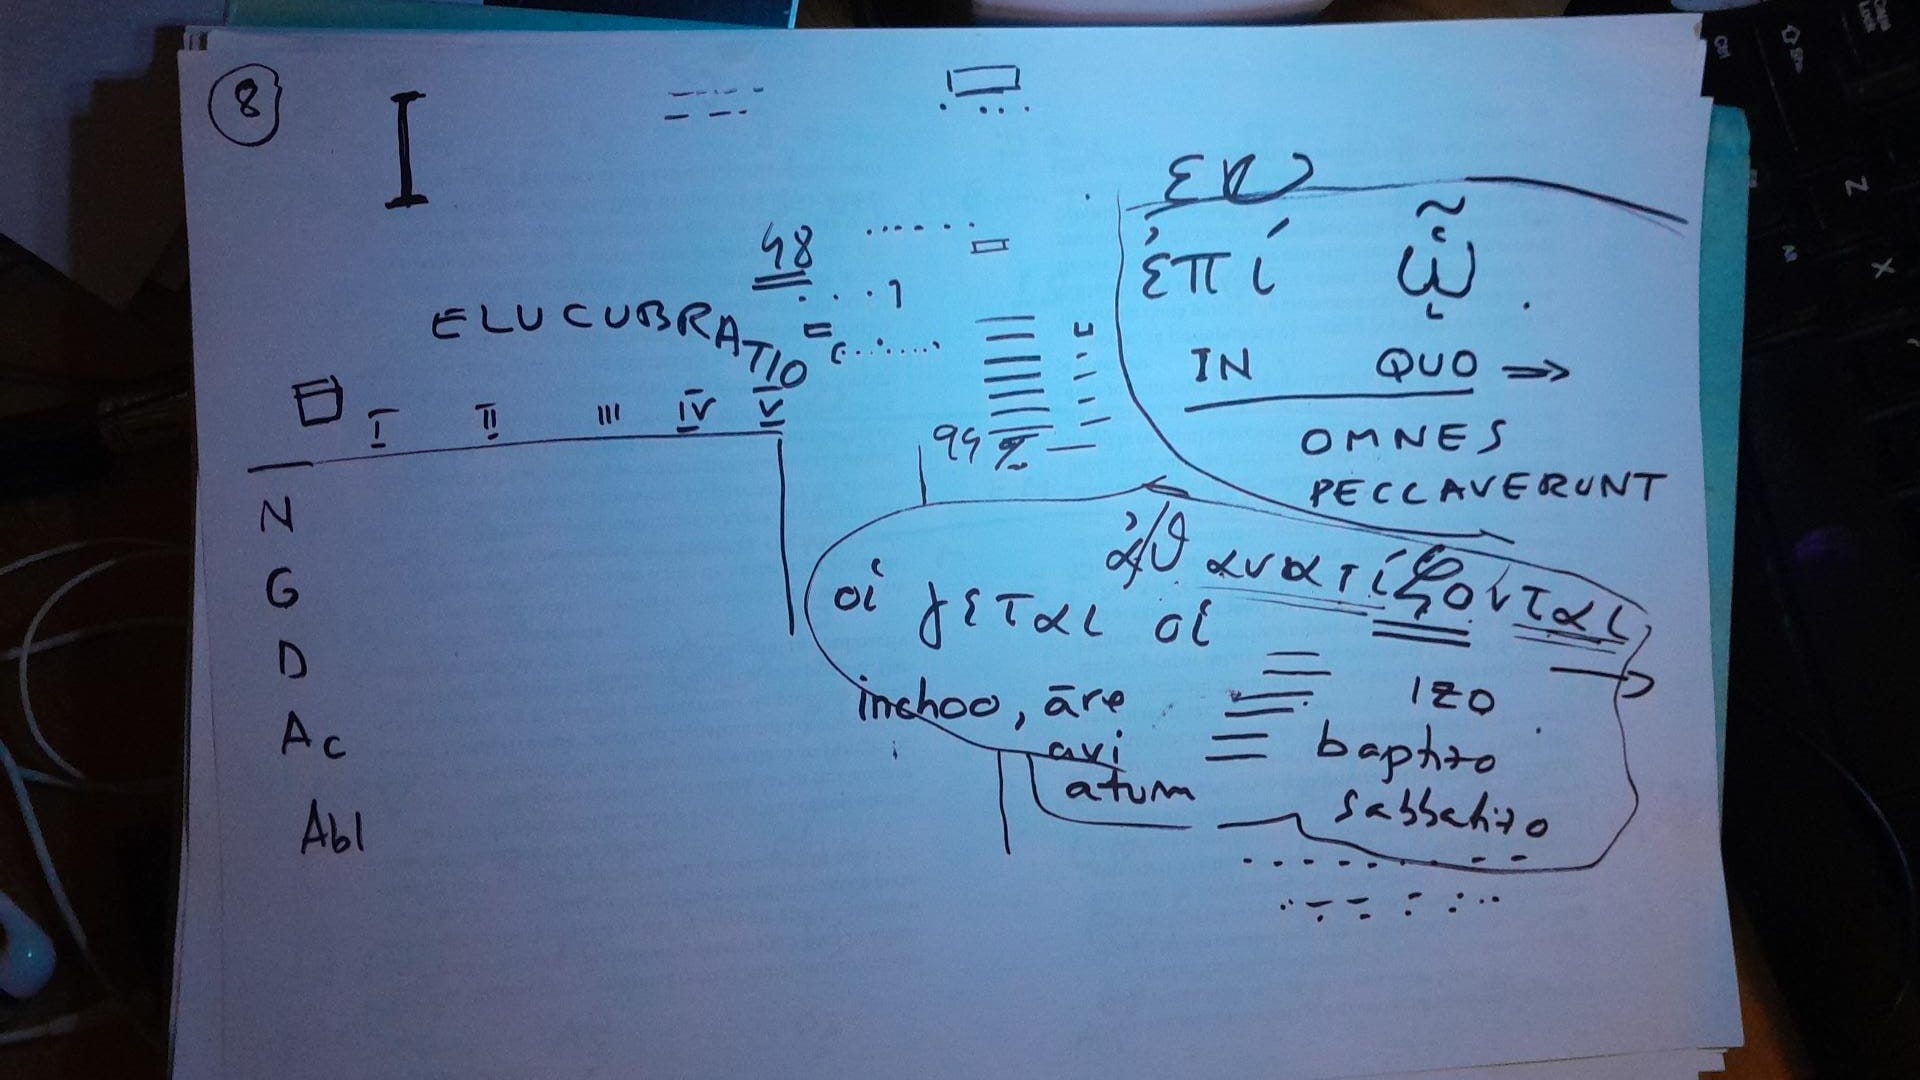 8
I
48
ELUCUBRATIO =
I II III IV V
N
G
D
Ac
Abl
99 %
ἐπί ᾧ
IN QUO ⇒
OMNES
PECCAVERUNT
ἀθανατίζονται
οἱ γεται οἱ
inchoo, āre
avi
atum
IZO
baptizo
sabbatizo